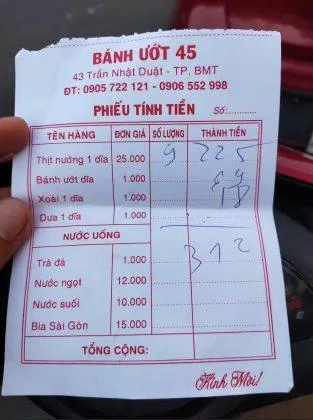 BÁNH ƯỚT 45
43 Trần Nhật Duật - TP. BMT
ĐT: 0905 722 121 - 0906 552 998
PHIẾU TÍNH TIỀN Số:............
TÊN HÀNG ĐƠN GIÁ SỐ LƯỢNG THÀNH TIỀN
Thịt nướng 1 dĩa 25.000 9 225
Bánh ướt dĩa 1.000
Xoài 1 dĩa 1.000 18
Dưa 1 dĩa 1.000
NƯỚC UỐNG
Trà đá 1.000 312
Nước ngọt 12.000
Nước suối 10.000
Bia Sài Gòn 15.000
TỔNG CỘNG:
Kính Mời!